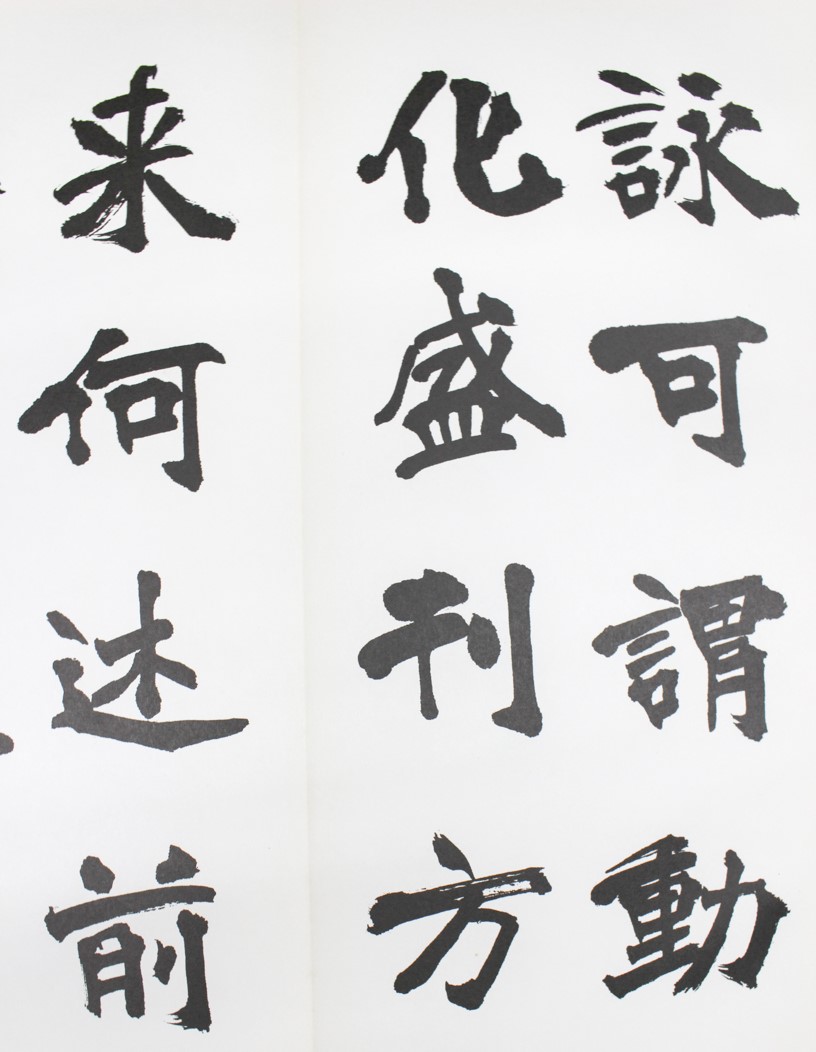 詠可謂動
化盛刊方
来何述前